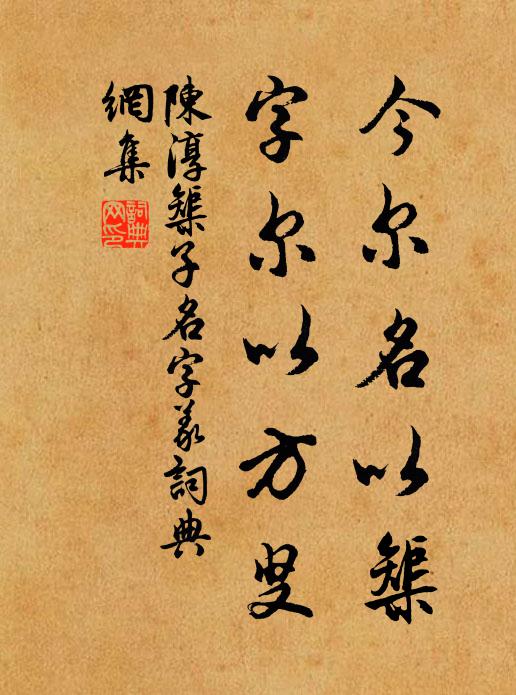 今尔名以榘
字尔以方叟
陳淳榘子名字義詞典
網集
詞典
网印